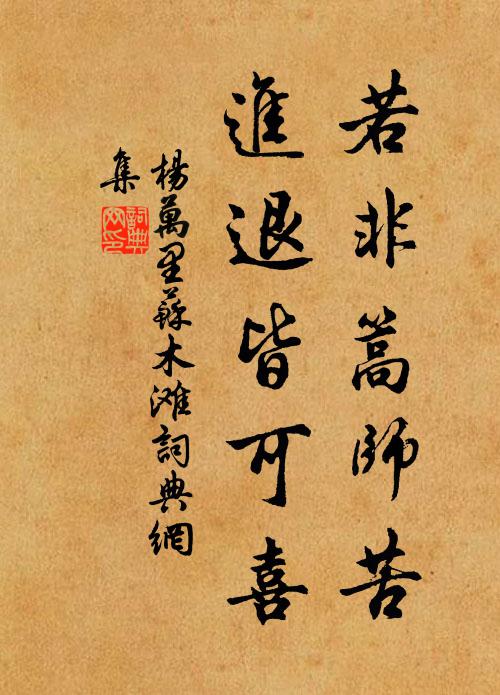 若非篙師苦
進退皆可喜
楊萬里蘇木滩詞典網
集
詞典
网印